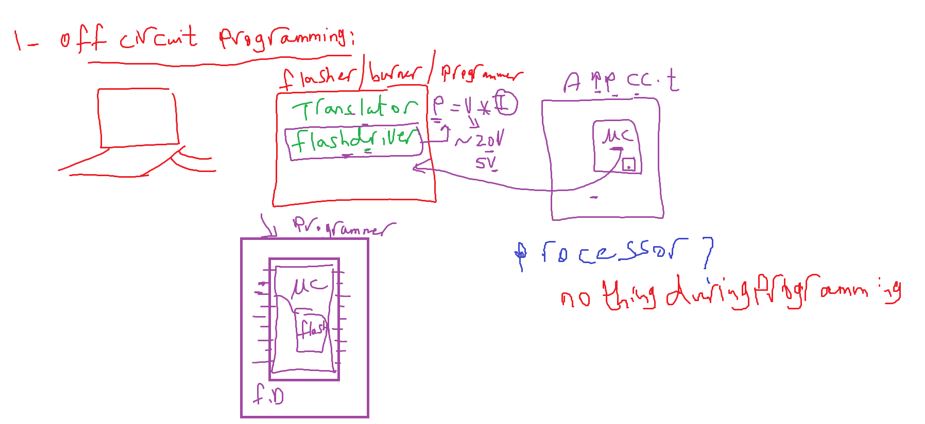 1- off circuit programming:
flasher/burner/programmer
APP cc.t
Translator
P = V * I
flashdriver
~20V
5V
μc
programmer
μc
flash
f.D
processor?
nothing during programming